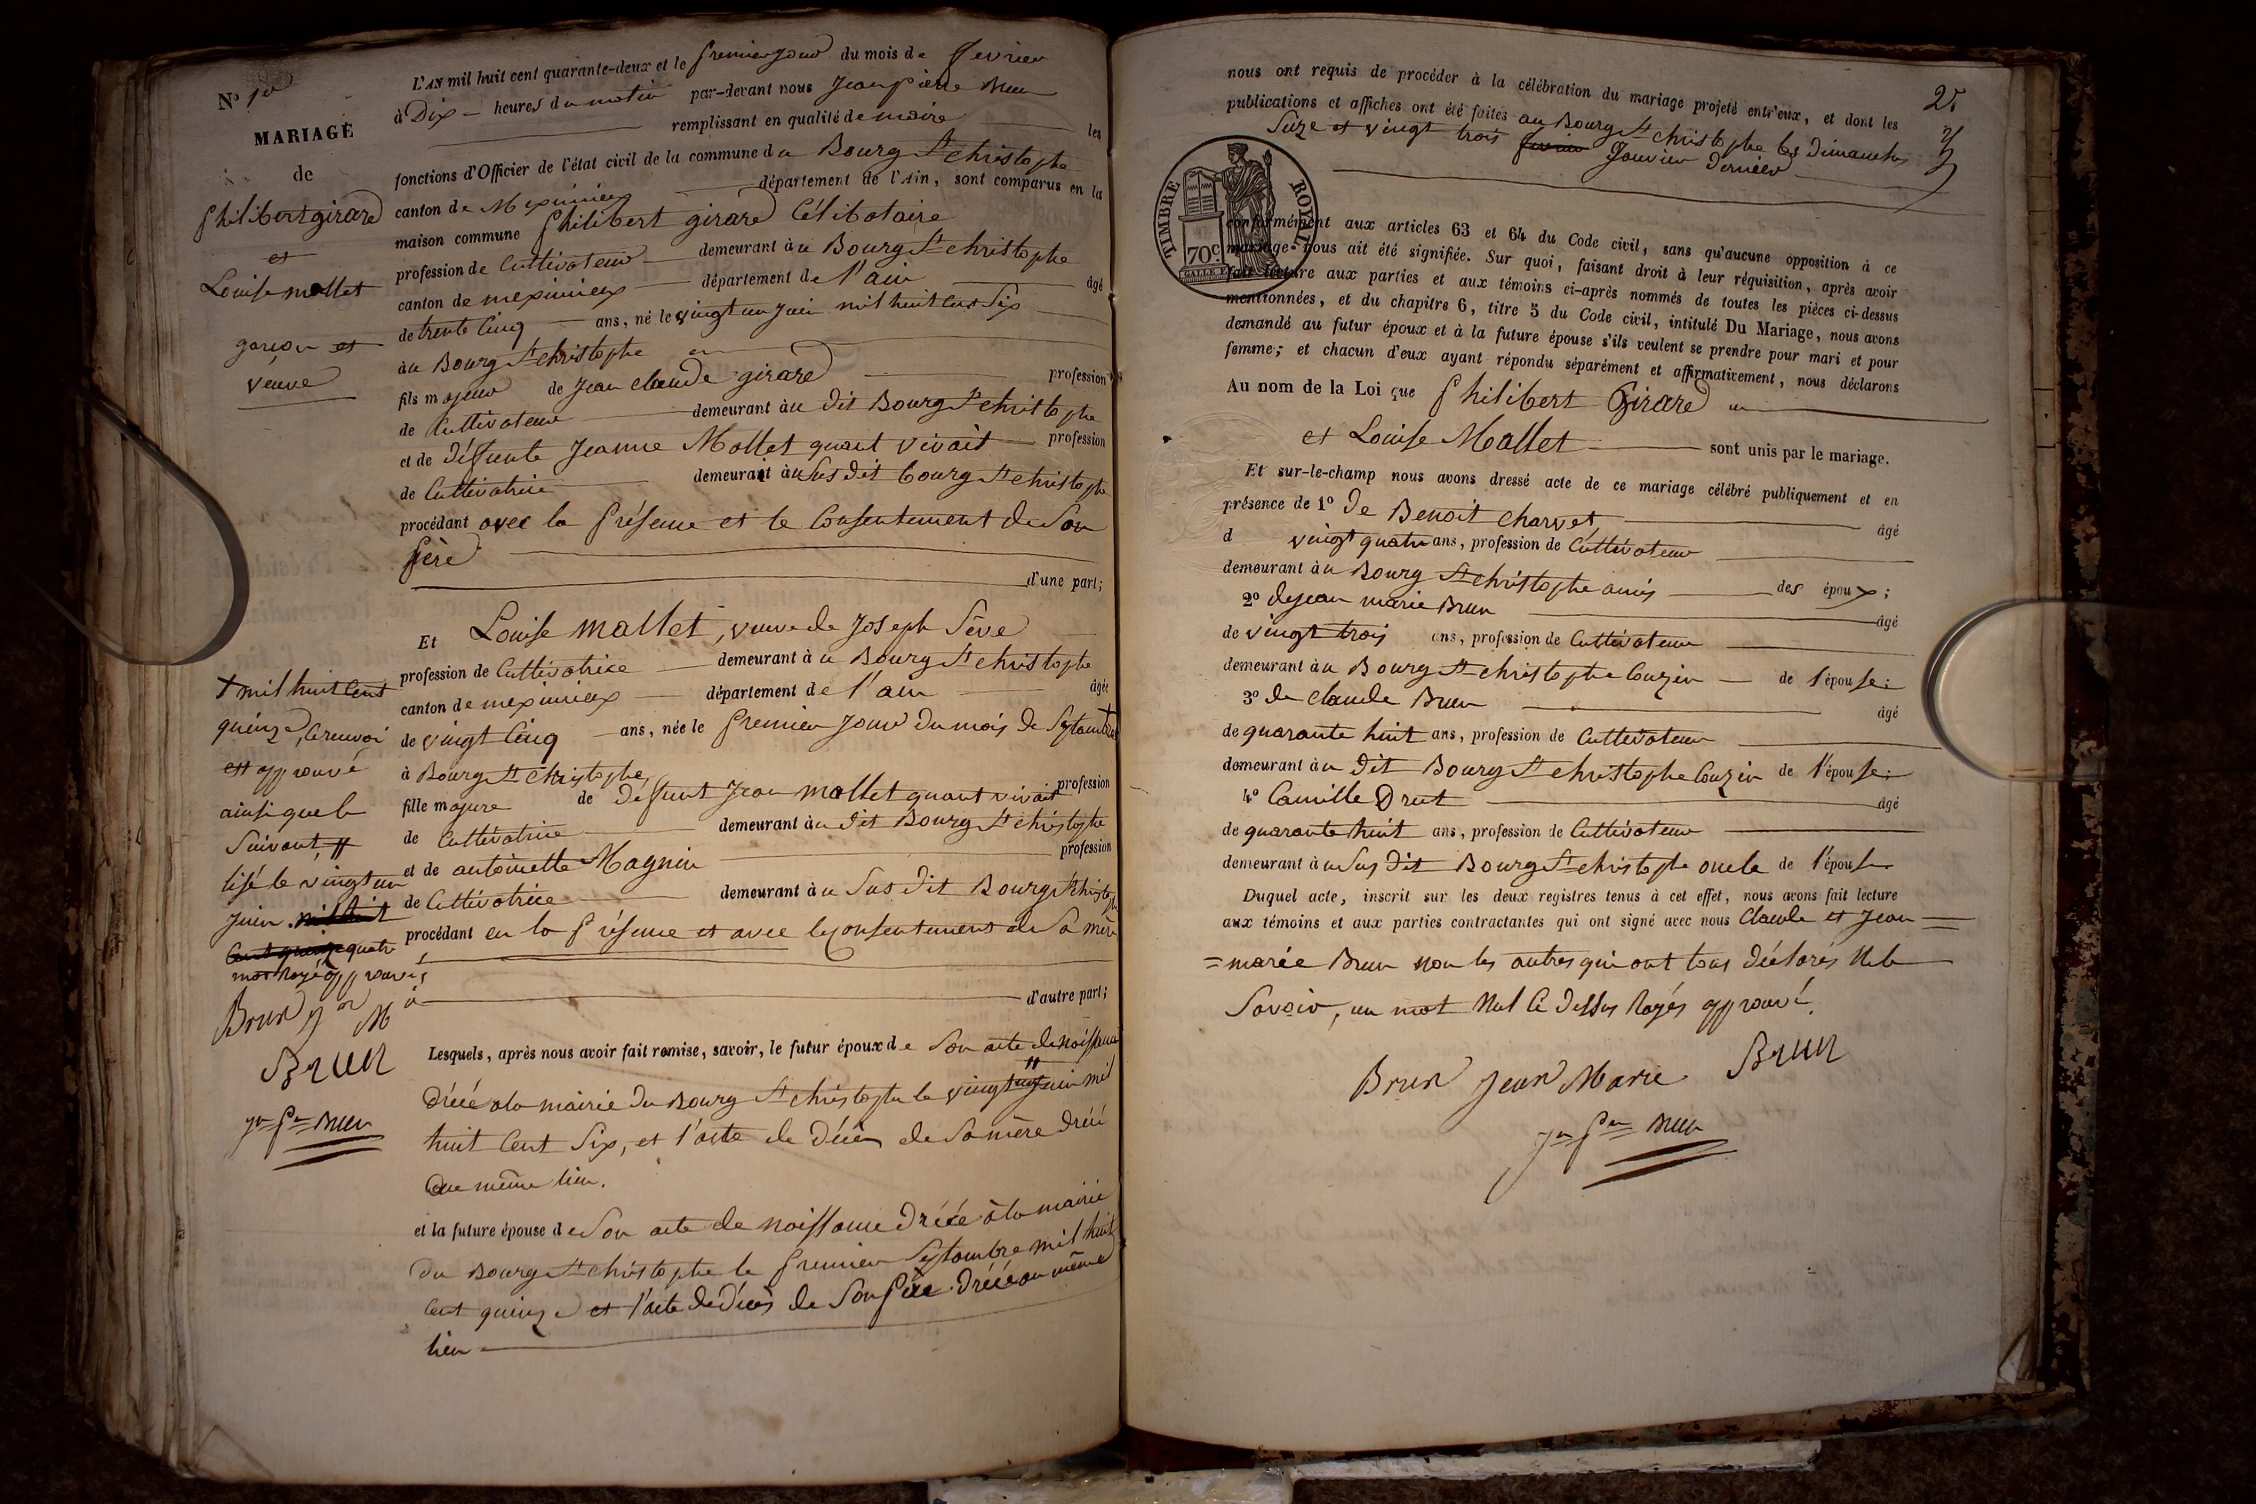 N° 1er
MARIAGE
de
Philibert girard
et
Louise mollet
garçon et
veuve
L'AN mil huit cent quarante-deux et le premier jour du mois de fevrier
à Dix heures du matin par-devant nous Jean pierre Brun
remplissant en qualité de maire les
fonctions d'Officier de l'état civil de la commune du Bourg St christophe
canton de Meximieux département de l'Ain, sont comparus en la
maison commune Philibert girard Célibataire
profession de Cultivateur demeurant à u Bourg St christophe
canton de meximieux département de l'ain âgé
de trente Cinq ans, né le vingt un juin mil huit cent Six
àu Bourg St christophe
fils majeur de Jean claude girard profession
de Cultivateur demeurant àu dit Bourg St christophe
et de défunte Jeanne Mollet quant vivait profession
de Cultivatrice demeurait àu Sus dit bourg St christophe
procédant avec la présence et le Consentement de Son
père
d'une part;
Et Louise mollet, veuve de Joseph Sève
profession de Cultivatrice demeurant à u Bourg St christophe
canton de meximieux département de l'ain âgée
de vingt Cinq ans, née le premier jour du mois de Septambre +
à Bourg St christophe
fille majure de défunt Jean mollet quant vivait profession
de Cultivatrice demeurant àu dit Bourg St christophe
et de antoinette Magnin profession
de Cultivatrice demeurant à u Sus dit Bourg St christophe
procédant en la présence et avec le consentement de Sa mère
d'autre part;
+ mil huit Cent
quinze, Ce renvoi
est approuvé
ainsi que le
Suivant //
lisé le vingt un
juin mil huit
Cent quinze quatre
mot rayé approuvés
Brun Jn Mie
Brun
Jn Pre Brun
Lesquels, après nous avoir fait remise, savoir, le futur époux de Son acte de naissance
dréée a la mairie du Bourg St christophe le vingt un juin mil
huit Cent Six, et l'acte de décès de Sa mère dréé
au même lieu.
et la future épouse de Son acte de naissance dréée à la mairie
du Bourg St christophe le premier Septambre mil huit
Cent quinze et l'acte de décès de Son père dréée au même
lieu
2.
nous ont requis de procéder à la célébration du mariage projeté entr'eux, et dont les
publications et affiches ont été faites au Bourg St christophe les dimanches
Sèze et vingt trois fevrier Janvier dernier
TIMBRE ROYAL
70c
conformément aux articles 63 et 64 du Code civil, sans qu'aucune opposition à ce
mariage nous ait été signifiée. Sur quoi, faisant droit à leur réquisition, après avoir
fait lecture aux parties et aux témoins ci-après nommés de toutes les pièces ci-dessus
mentionnées, et du chapitre 6, titre 5 du Code civil, intitulé Du Mariage, nous avons
demandé au futur époux et à la future épouse s'ils veulent se prendre pour mari et pour
femme; et chacun d'eux ayant répondu séparément et affirmativement, nous déclarons
Au nom de la Loi que Philibert Girard
et Louise Mollet sont unis par le mariage.
Et sur-le-champ nous avons dressé acte de ce mariage célébré publiquement et en
présence de 1° de Benoit charvet âgé
d vingt quatre ans, profession de Cultivateur
demeurant àu Bourg St christophe amis des époux;
2° de jean marie Brun âgé
de vingt trois ans, profession de Cultivateur
demeurant àu Bourg St christophe Couzin de l'épouse;
3° de claude Brun âgé
de quarante huit ans, profession de Cultivateur
demeurant àu dit Bourg St christophe Couzin de l'épouse;
4° Camille Drut âgé
de quarante huit ans, profession de Cultivateur
demeurant à u Sus dit Bourg St christophe oncle de l'épouse
Duquel acte, inscrit sur les deux registres tenus à cet effet, nous avons fait lecture
aux témoins et aux parties contractantes qui ont signé avec nous Claude et Jean =
= marie Brun non les autres qui ont tous déclarés Ne le
Savoir, un mot Nul Ci dessus Rayés approuvé.
Brun Jean Marie Brun
Jn Pre Brun